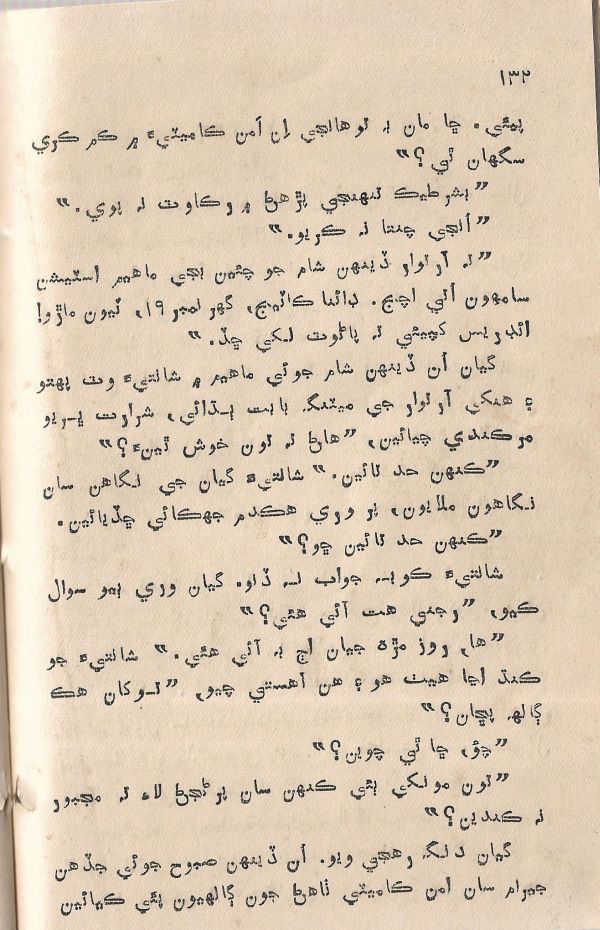 ١٣٢
پيٿي. ڇا مان بہ توهانجي اِن اَمن ڪاميٽيءَ ۾ ڪم ڪري
سگهان ٿي؟“
”بشرطيڪ تنهنجي پڙهڻ ۾ رڪاوٽ نہ پوي.“
”اُنجي چنتا نہ ڪريو.“
”تہ آرتوار ڏينهن شام جو چئين بجي ماهيم اسٽيشن
سامهون اُتي اچج. ڊائنا ڪاٽيج، گهر نمبر ١٩، ٽيون ماڙو!
ائڊريس کپيئي تہ پاڻوٽ لکي ڇڏ.“
گيان اُن ڏينهن شام جوئي ماهيم ۾ شانتيءَ وٽ پهتو
۽ هنکي آرتوار جي ميٽنگ بابت ٻڌائي، شرارت ڀريو
مرڪندي چيائين، ”هاڻ تہ تون خوش ٿينءَ؟“
”ڪنهن حد تائين.“ شانتيءَ گيان جي نگاهن سان
نگاهون ملايون، پر وري هڪدم جهڪائي ڇڏيائين.
”ڪنهن حد تائين ڇو؟“
شانتيءَ ڪو بہ جواب نہ ڏنو. گيان وري ٻيو سوال
ڪيو، ”رجني هت آئي هئي؟“
”ها، روز مڙه جيان اڄ بہ آئي هئي.“ شانتيءَ جو
ڪنڌ اڃا هيٺ هو ۽ هن آهستي چيو، ”توکان هڪ
ڳالهہ پڇان؟“
”چؤ، ڇا ٿي چوين؟“
”تون مونکي ٻئي ڪنهن سان پرڻجڻ لاءِ تہ مجبور
نہ ڪندين؟“
گيان دنگ رهجي ويو. اُن ڏينهن صبوح جوئي جڏهن
جيرام سان امن ڪاميٽي ٺاهڻ جون ڳالهيون پئي ڪيائين